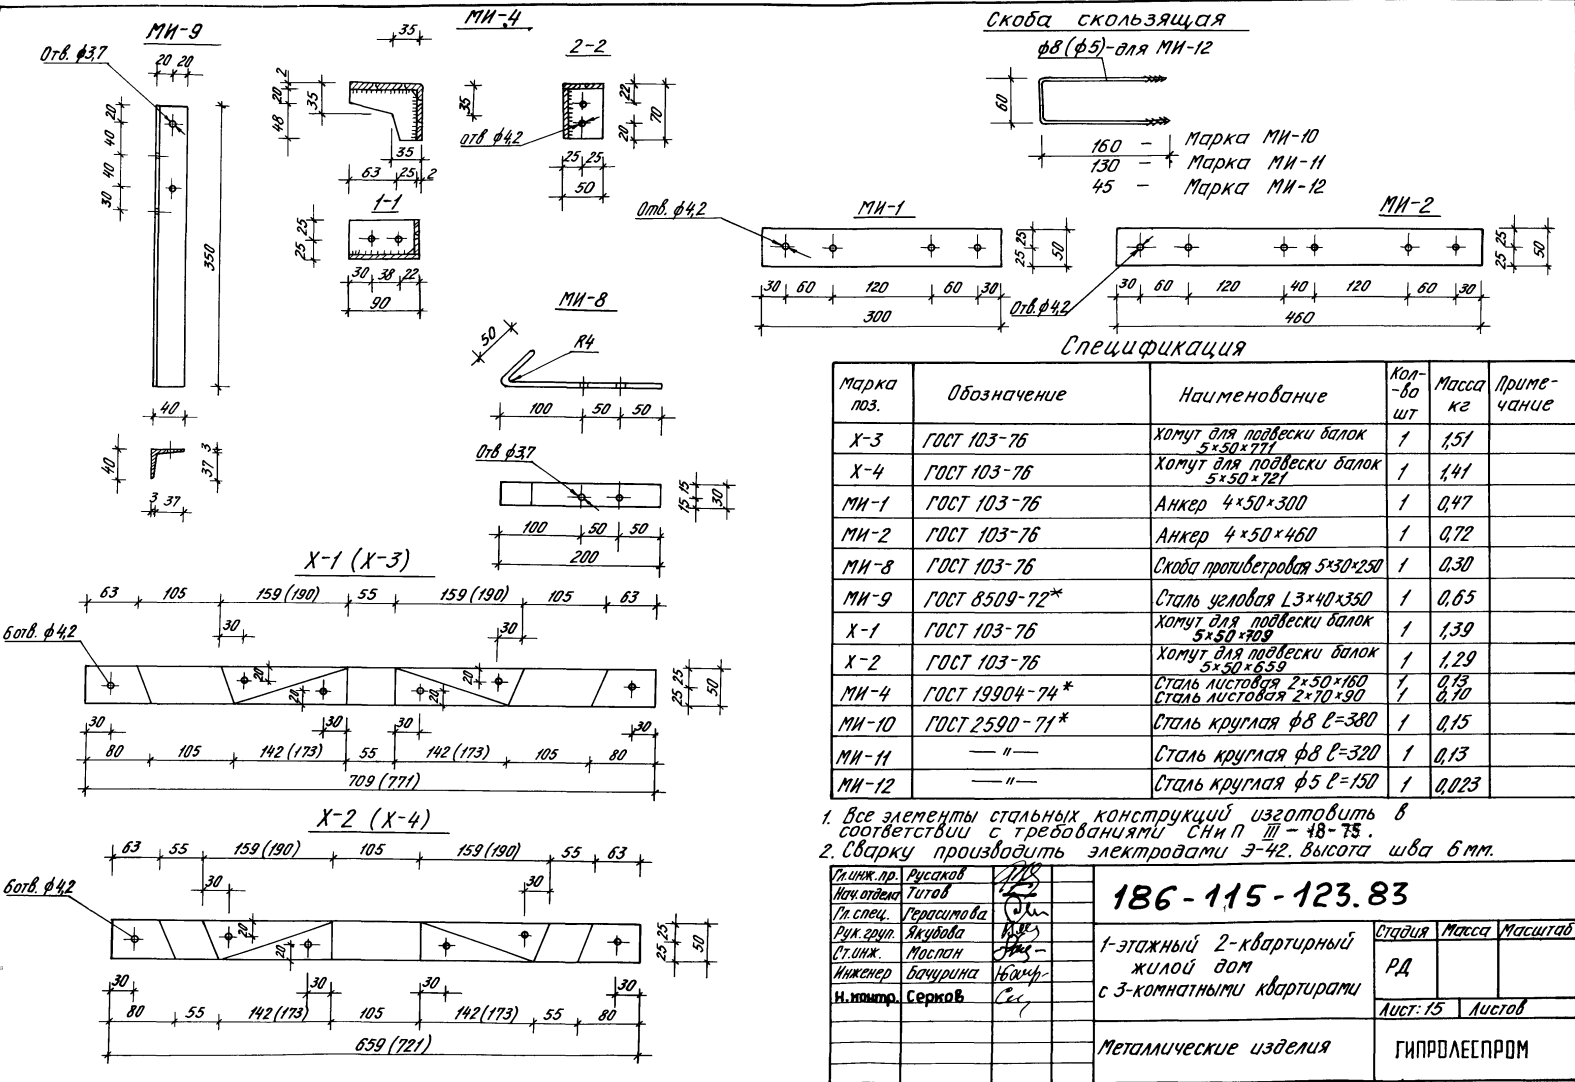 МИ-9
Отв. ф3,7
20 20
20
40
40
30
350
40
40
3
37
3 37
МИ-4
35
2
20
48
35
35
35
63 25 2
1-1
25
25
30 38 22
90
2-2
отв ф4,2
22
20
70
25 25
50
МИ-8
50
R4
100 50 50
Отв ф3,7
15 15
30
100 50 50
200
Скоба скользящая
ф8 (ф5)-для МИ-12
60
160 - Марка МИ-10
130 - Марка МИ-11
45 - Марка МИ-12
МИ-1
Отв. ф4,2
25 25
50
30 60 120 60 30
300
МИ-2
Отв. ф4,2
25 25
50
30 60 120 40 120 60 30
460
Х-1 (Х-3)
63 105 159 (190) 55 159 (190) 105 63
30 30
6 отв. ф4,2
20 20 20 20
25 25
50
30 30 30 30
80 105 142 (173) 55 142 (173) 105 80
709 (771)
Х-2 (Х-4)
63 55 159 (190) 105 159 (190) 55 63
30 30
6 отв. ф4,2
20 20
25 25
50
30 30 30 30
80 55 142 (173) 105 142 (173) 55 80
659 (721)
Спецификация
Марка поз. Обозначение Наименование Кол--во шт Масса кг Приме-чание
Х-3 ГОСТ 103-76 Хомут для подвески балок 5×50×771 1 1,51
Х-4 ГОСТ 103-76 Хомут для подвески балок 5×50×721 1 1,41
МИ-1 ГОСТ 103-76 Анкер 4×50×300 1 0,47
МИ-2 ГОСТ 103-76 Анкер 4×50×460 1 0,72
МИ-8 ГОСТ 103-76 Скоба противетровая 5×30×250 1 0,30
МИ-9 ГОСТ 8509-72* Сталь угловая L3×40×350 1 0,65
Х-1 ГОСТ 103-76 Хомут для подвески балок 5×50×709 1 1,39
Х-2 ГОСТ 103-76 Хомут для подвески балок 5×50×659 1 1,29
МИ-4 ГОСТ 19904-74* Сталь листовая 2×50×160 1 0,13
Сталь листовая 2×70×90 1 0,10
МИ-10 ГОСТ 2590-71* Сталь круглая ф8 ℓ=380 1 0,15
МИ-11 —"— Сталь круглая ф8 ℓ=320 1 0,13
МИ-12 —"— Сталь круглая ф5 ℓ=150 1 0,023
1. Все элементы стальных конструкций изготовить в
соответствии с требованиями СНиП III-18-75.
2. Сварку производить электродами Э-42. Высота шва 6 мм.
Гл.инж.пр. Русаков
Нач.отдела Титов
Гл.спец. Герасимова
Рук.груп. Якубова
Ст.инж. Моспан
Инженер Бачурина
Н.контр. Серков
186-115-123.83
1-этажный 2-квартирный
жилой дом
с 3-комнатными квартирами
Стадия Масса Масштаб
РД
Лист: 15 Листов
Металлические изделия
ГИПРОЛЕСПРОМ